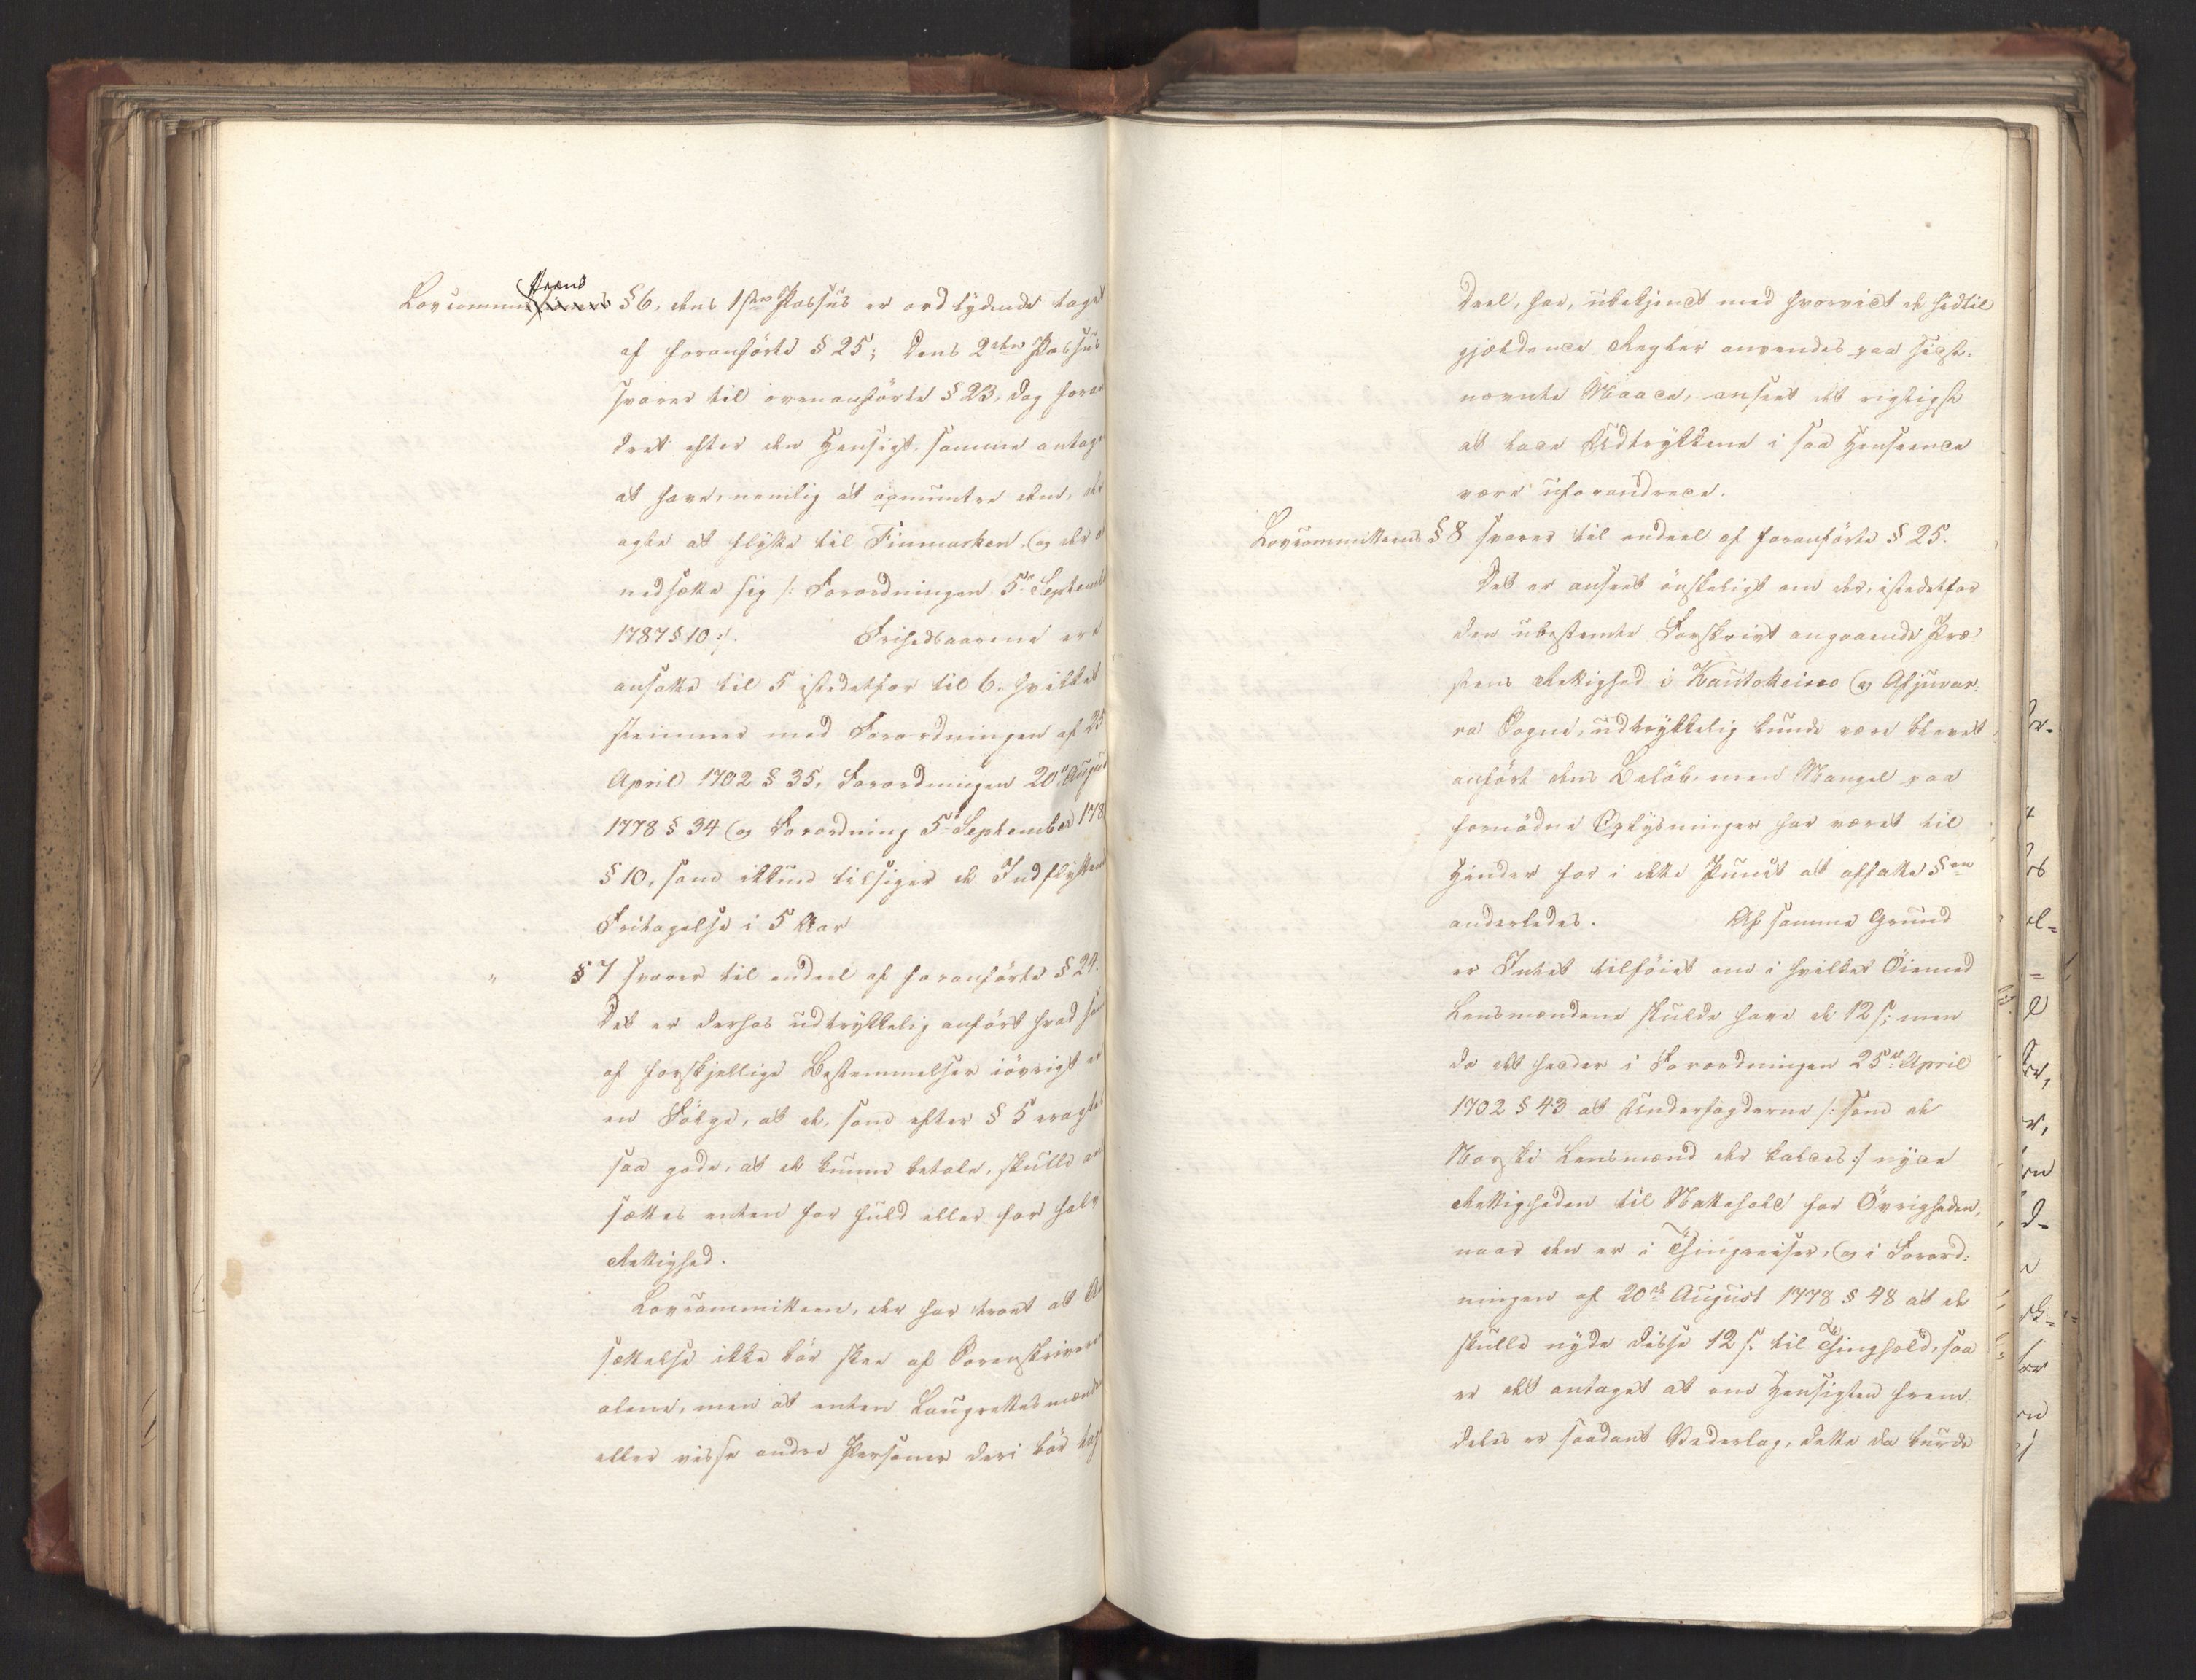 Lovcommitteens §6, dens 1ste Passus er ordlydende taget
af foranförte § 25; Dens 2den Passus
svarer til ovenanförte § 23, dog foran
dret efter den Hensigt, samme antages
at have, nemlig at opmuntre dem, der
agte at flytte til Finmarken, og der at
nedsætte sig /: Forordningen 5te Septemb
1787 § 10 :/. Frihedsaarene ere
ansatte til 5 istedetfor til 6, hvilket
stemmer med Forordningen af 25
April 1702 § 35, Forordningen 20de August
1778 § 34 og Forordning 5te September 178
§ 10, som ikkun tilsiger de Indflyttende
Fritagelse i 5 Aar
" § 7 svarer til endeel af foranförte § 24.
Det er derhos udtrykkelig anfört hvad som
af forskjellige Bestemmelser iövrigt er
en Fölge, at de, som efter § 5 eragtes
saa gode, at de kunne betale, skulle an
sættes enten for fuld eller for halv
Rettighed.
Lovcommitteen, der har troet at An
sættelse ikke bör skee af Sorenskriveren
alene, men at enten Laugrettesmænd
eller visse andre Personer deri bör tage
Deel, har, ubekjendt med hvorvidt de hidtil
gjældende Regler anvendes paa sidst-
nævnte Maade, anseet det rigtigst
at lade Udtrykkene i saa Henseende
være uforandrede.
Lovcommitteens § 8 svarer til endeel af foranförte § 25.
Det er anseet önskeligt om der, istedetfor
den ubestemte Forskrivt angaaende Præ-
stens Rettighed i Kautokeino og Afjuvar-
ra Sogne, udtrykkelig kunde være blevet
anfört dens Belöb, men Mangel paa
fornödne Oplysninger har været til
Hinder for i dette Punct at affatte §en
anderledes. Af samme Grund
er Intet tilföiet om i hvilket Öiemed
Lensmændene skulde have de 12 s; men
da det hedder i Forordningen 25de April
1702 § 43 at Underfogderne /: som de
Norske Lensmænd der kaldes :/ nyde
Rettigheden til Nattehold for Övrigheden,
naar den er i Thingreiser, og i Forord-
ningen af 20de August 1778 § 48 at de
skulle nyde disse 12 s. til Thinghold, saa
er det antaget at om Hensigten frem-
deles er saadant Vederlag, dette da burde